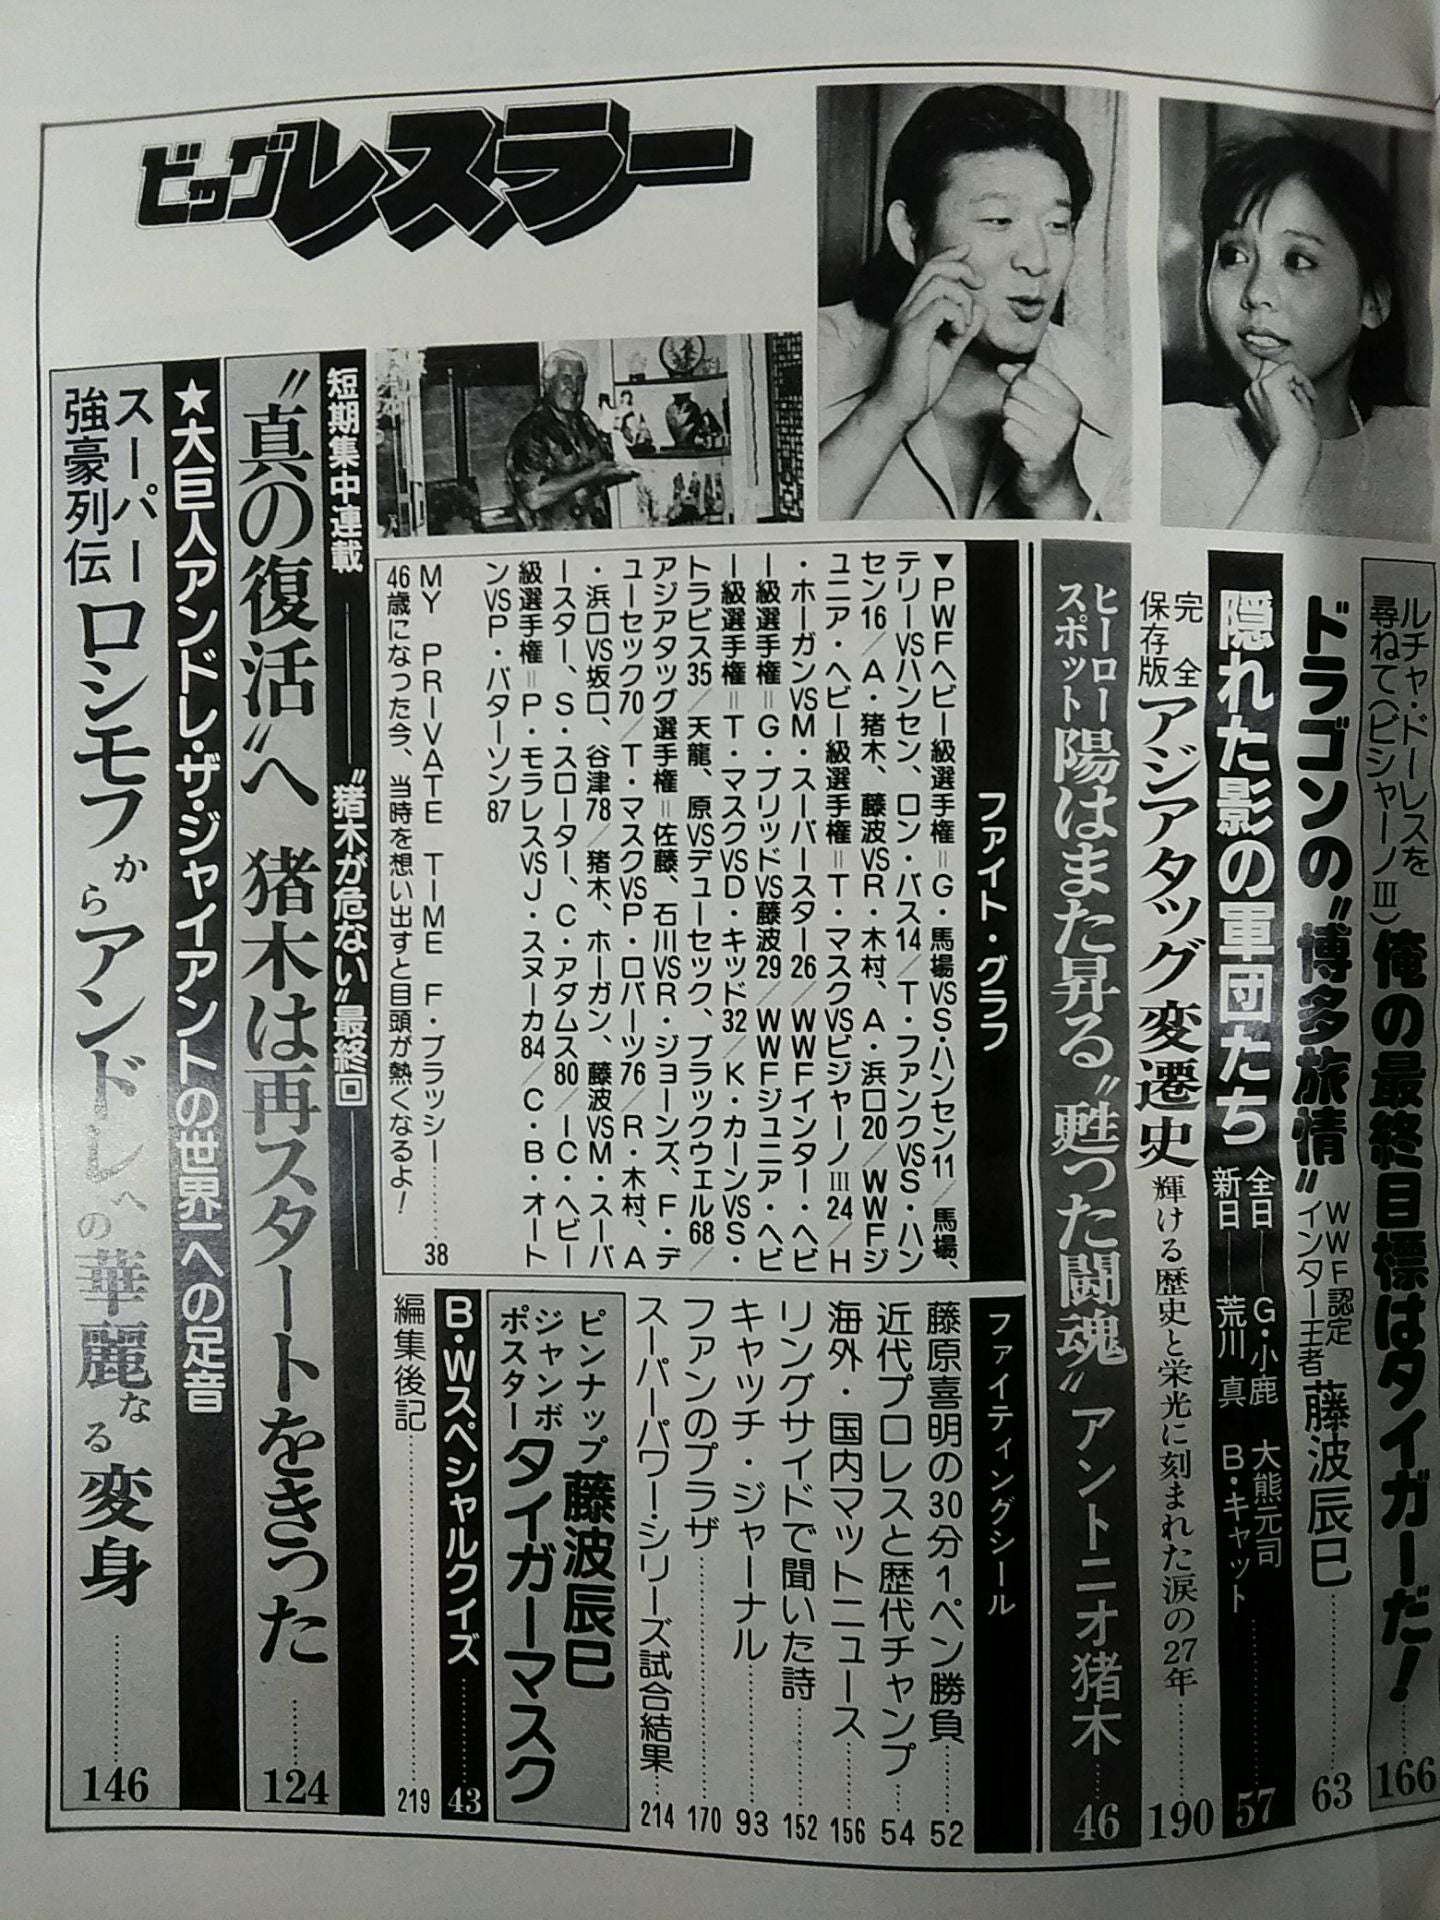 ビッグレスラー
ルチャ・ドーレスを
尋ねて（ビシャーノⅢ）
俺の最終目標はタイガーだ！……166
ドラゴンの“博多旅情”
WWF認定
インター王者
藤波辰巳……63
隠れた影の軍団たち
全日――G・小鹿　大熊元司
新日――荒川　真　B・キャット……57
完全
保存版
アジアタッグ変遷史
輝ける歴史と栄光に刻まれた涙の27年……190
ヒーロー
スポット
陽はまた昇る“甦った闘魂”アントニオ猪木……46
ファイト・グラフ
▼PWFヘビー級選手権＝G・馬場VSS・ハンセン11／馬場、
テリーVSハンセン、ロン・バス14／T・ファンクVSS・ハン
セン16／A・猪木、藤波VSR・木村、A・浜口20／WWFジ
ュニア・ヘビー級選手権＝T・マスクVSビジャーノⅢ24／H
・ホーガンVSM・スーパースター26／WWFインター・ヘビ
ー級選手権＝G・ブリッドVS藤波29／WWFジュニア・ヘビ
ー級選手権＝T・マスクVSD・キッド32／K・カーンVSS・
トラビス35／天龍、原VSデューセック、ブラックウェル68／
アジアタッグ選手権＝佐藤、石川VSR・ジョーンズ、F・デ
ューセック70／T・マスクVSP・ロバーツ76／R・木村、A
・浜口VS坂口、谷津78／猪木、ホーガン、藤波VSM・スーパ
ースター、S・スローター、C・アダムス80／IC・ヘビー
級選手権＝P・モラレスVSJ・スヌーカ84／C・B・オート
ンVSP・パターソン87
MY PRIVATE TIME F・ブラッシー……38
46歳になった今、当時を想い出すと目頭が熱くなるよ！
ファイティングシール
藤原喜明の30分1ペン勝負……52
近代プロレスと歴代チャンプ……54
海外・国内マットニュース……156
リングサイドで聞いた詩……152
キャッチ・ジャーナル……93
ファンのプラザ……170
スーパーパワー・シリーズ試合結果……214
ピンナップ
ジャンボ
ポスター
藤波辰巳
タイガーマスク
B・Wスペシャルクイズ……43
編集後記……219
短期集中連載――“猪木が危ない”最終回――
“真の復活”へ 猪木は再スタートをきった……124
★大巨人アンドレ・ザ・ジャイアントの世界一への足音
スーパー
強豪列伝
ロシモフからアンドレへの華麗なる変身……146